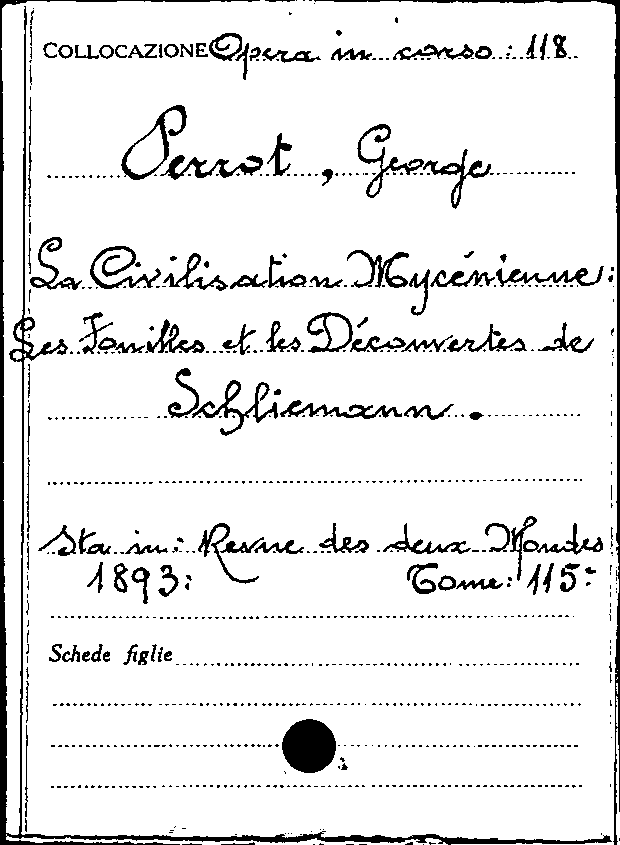 COLLOCAZIONE Opera in corso: 118
Perrot, George
La Civilisation Mycénienne:
Les Fouilles et les Découvertes de
Schliemann.
Sta in: Revue des deux Mondes
1893: Tome: 115º
Schede figlie